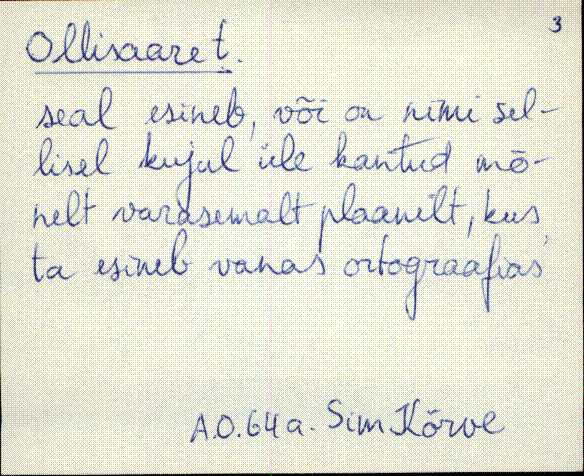 3
Ollisaare t.
seal esineb, või on nimi sel-
lisel kujul üle kantud mõ-
nelt varasemalt plaanilt, kus
ta esineb vanas ortograafias
A.O. 64 a. Sim Kõrve